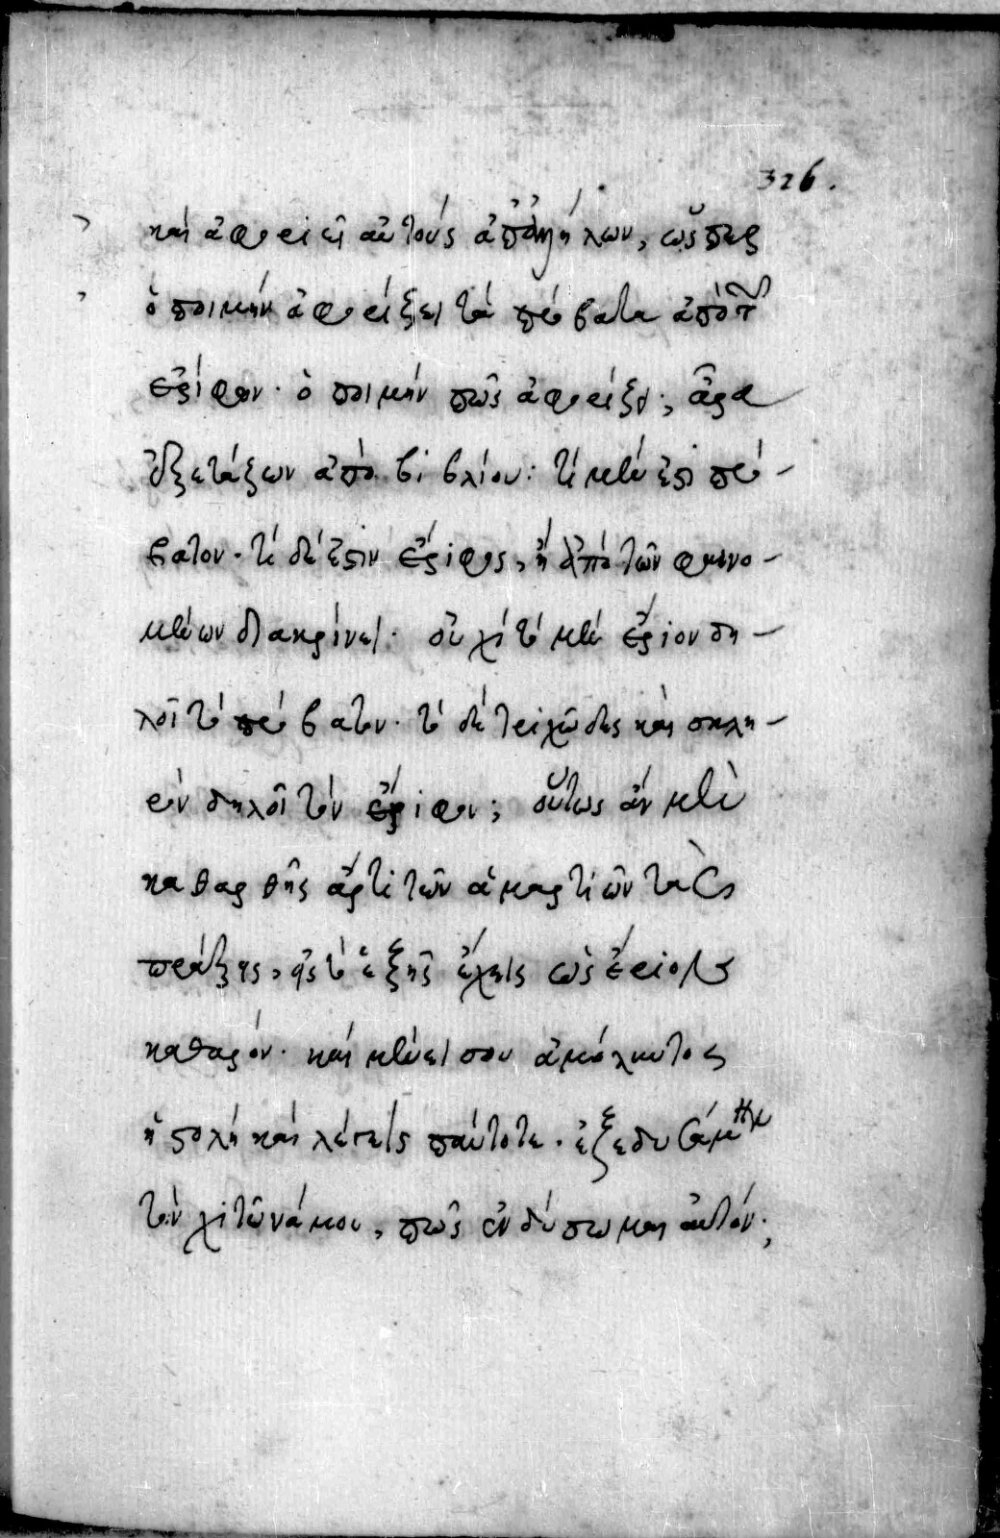 326.
καὶ ἀφοριεῖ αὐτοὺς ἀπ' ἀλλήλων, ὥσπερ
ὁ ποιμὴν ἀφορίζει τὰ πρόβατα ἀπὸ τῶν
ἐρίφων. ὁ ποιμὴν πῶς ἀφορίζει; ἆρα
ἐξετάζων ἀπὸ βιβλίου; τί μέν ἐστι πρό-
βατον. τί δέ ἐστιν ἔριφος, ἢ ἀπὸ τῶν φαινο-
μένων διακρίνει. οὐχὶ τὸ μὲν ἔριον δη-
λοῖ τὸ πρόβατον. τὸ δὲ τριχῶδες καὶ σκλη-
ρὸν δηλοῖ τὸν ἔριφον; οὕτως ἂν μὲν
καθαρθῇς ἄρτι τῶν ἁμαρτιῶν τὰς
πράξεις, εἰς τὸ ἑξῆς ἔχεις ὡς ἔριον
καθαρόν. καὶ μένει σου ἀμόλυντος
ἡ στολὴ καὶ λέγεις πάντοτε. ἐξεδυσάμην
τὸν χιτῶνά μου, πῶς ἐνδύσωμαι αὐτόν;